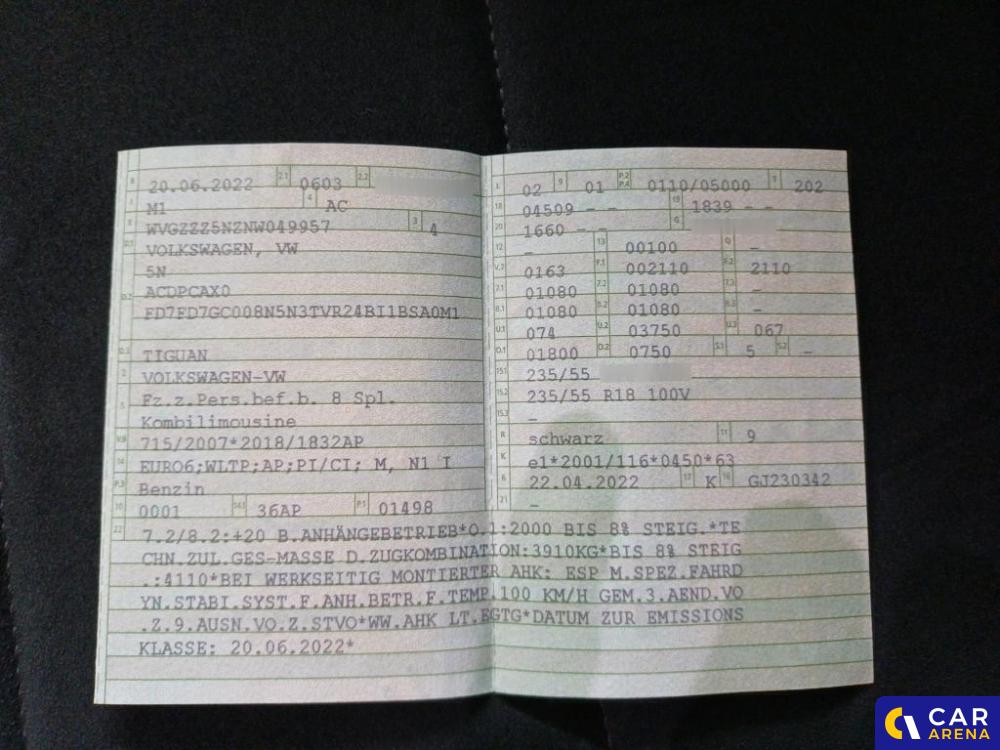 B 20.06.2022 2.1 0603 2.2
J M1 4 AC
E WVGZZZ5NZNW049957 3 4
D.1 VOLKSWAGEN, VW
5N
D.2 ACDPCAX0
FD7FD7GC008N5N3TVR24BI1BSA0M1
D.3 TIGUAN
2 VOLKSWAGEN-VW
5 Fz.z.Pers.bef.b. 8 Spl.
Kombilimousine
V.9 715/2007*2018/1832AP
14 EURO6;WLTP;AP;PI/CI; M, N1 I
P.3 Benzin
10 0001 14.1 36AP P.1 01498
L 02 9 01 P.2 P.4 0110/05000 T 202
18 04509 - - 19 1839 - -
20 1660 - - G
12 - 13 00100 Q -
V.7 0163 F.1 002110 F.2 2110
7.1 01080 7.2 01080 7.3 -
8.1 01080 8.2 01080 8.3 -
U.1 074 U.2 03750 U.3 067
O.1 01800 O.2 0750 S.1 5 S.2 -
15.1 235/55
15.2 235/55 R18 100V
15.3 -
R schwarz 11 9
K e1*2001/116*0450*63
6 22.04.2022 17 K 16 GJ230342
21 -
22 7.2/8.2:+20 B.ANHÄNGEBETRIEB*O.1:2000 BIS 8% STEIG.*TE
CHN.ZUL.GES-MASSE D.ZUGKOMBINATION:3910KG*BIS 8% STEIG
.:4110*BEI WERKSEITIG MONTIERTER AHK: ESP M.SPEZ.FAHRD
YN.STABI.SYST.F.ANH.BETR.F.TEMP.100 KM/H GEM.3.AEND.VO
.Z.9.AUSN.VO.Z.STVO*WW.AHK LT.EGTG*DATUM ZUR EMISSIONS
KLASSE: 20.06.2022*
CAR
ARENA